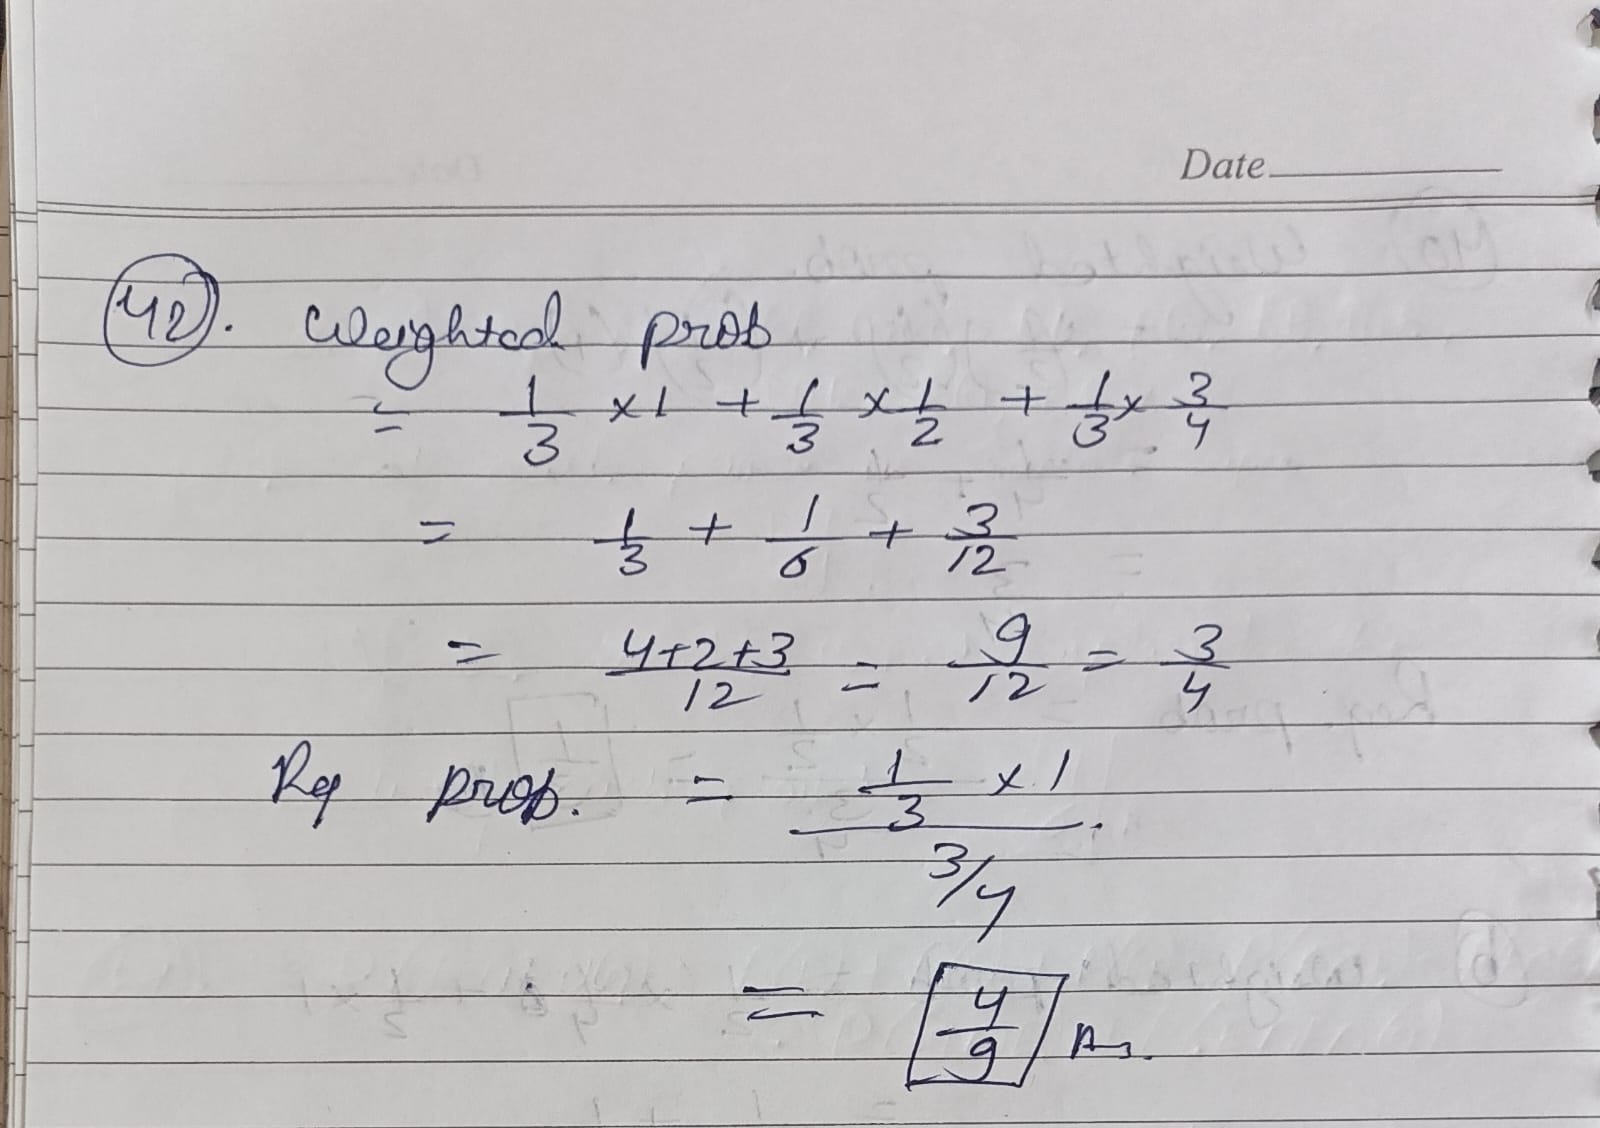 Date
42. Weighted prob
= 1/3 × 1 + 1/3 × 1/2 + 1/3 × 3/4
= 1/3 + 1/6 + 3/12
= 4+2+3/12 = 9/12 = 3/4
Req prob. = 1/3 × 1 / 3/4
= 4/9 Ans.